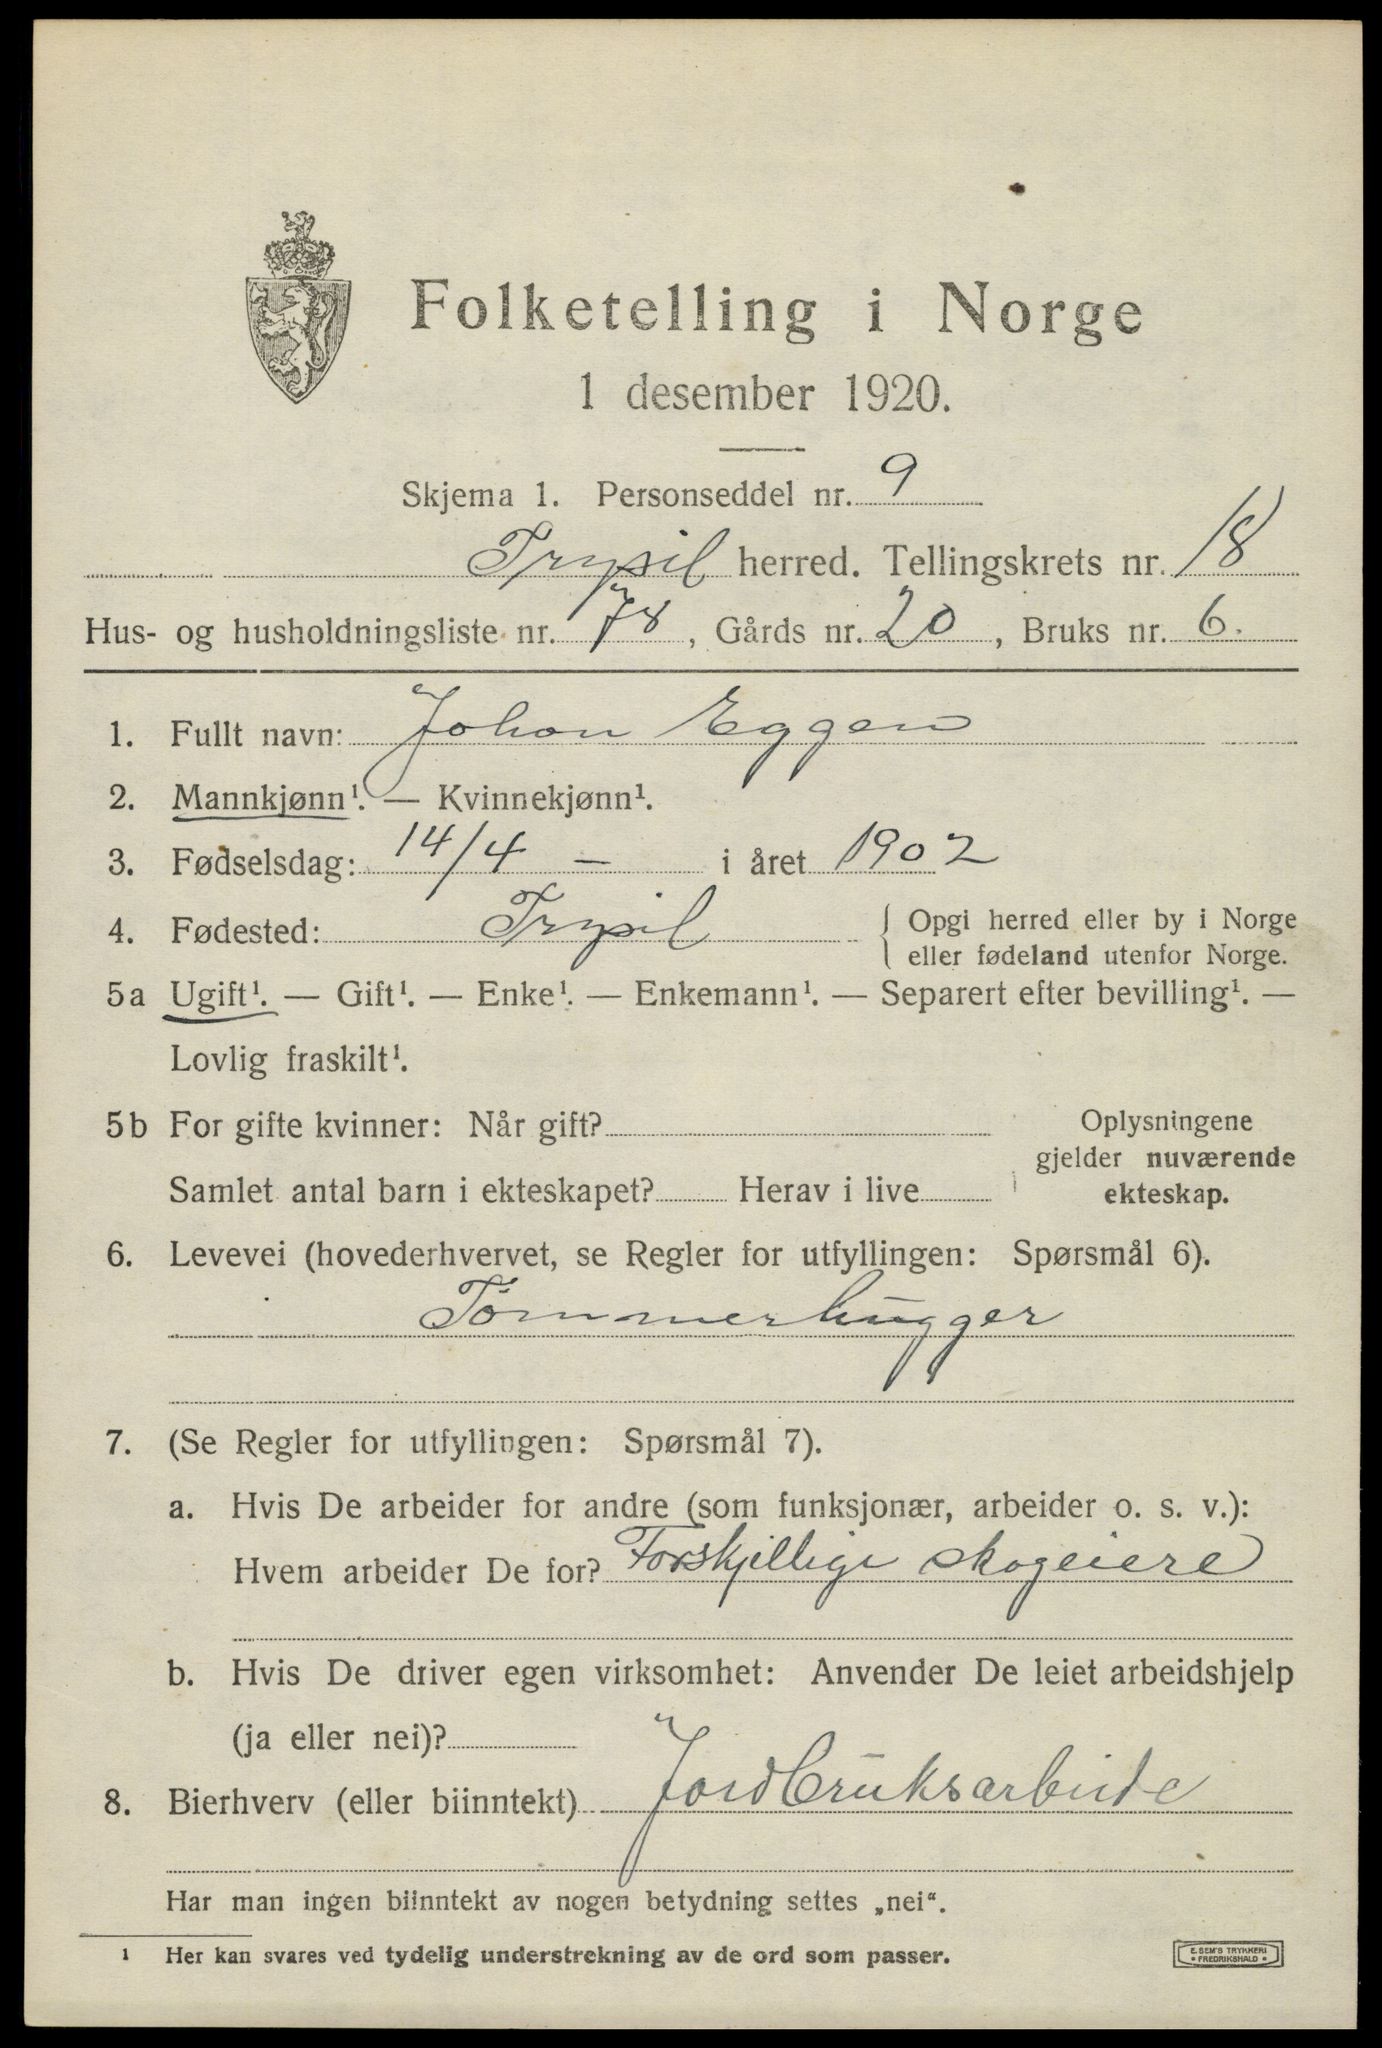 Folketelling i Norge
1 desember 1920.
Skjema 1. Personseddel nr. 9
Trysil herred. Tellingskrets nr. 18
Hus- og husholdningsliste nr. 78, Gårds nr. 20, Bruks nr. 6.
1. Fullt navn: Johan Eggen
2. Mannkjønn¹. — Kvinnekjønn¹.
3. Fødselsdag: 14/4 – i året 1902
4. Fødested: Trysil { Opgi herred eller by i Norge
eller fødeland utenfor Norge.
5a Ugift¹. — Gift¹. — Enke¹. — Enkemann¹. — Separert efter bevilling¹. —
Lovlig fraskilt¹.
5b For gifte kvinner: Når gift?
Samlet antal barn i ekteskapet? Herav i live
Oplysningene
gjelder nuværende
ekteskap.
6. Levevei (hovederhvervet, se Regler for utfyllingen: Spørsmål 6).
Tömmerhugger
7. (Se Regler for utfyllingen: Spørsmål 7).
a. Hvis De arbeider for andre (som funksjonær, arbeider o. s. v.):
Hvem arbeider De for? Forskjellige skogeiere
b. Hvis De driver egen virksomhet: Anvender De leiet arbeidshjelp
(ja eller nei)?
8. Bierhverv (eller biinntekt) Jordbruksarbeide
Har man ingen biinntekt av nogen betydning settes „nei“.
¹ Her kan svares ved tydelig understrekning av de ord som passer.
E. SEM'S TRYKKERI
• FREDRIKSHALD •